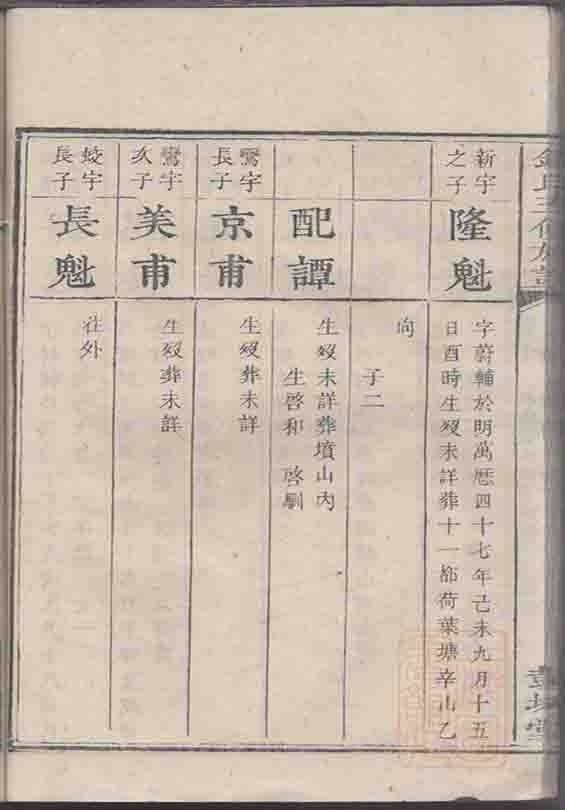 新宇
之子
隆魁
字蔚輔於明萬厯四十七年己未九月十五
日酉時生歿未詳葬十一都荷葉塘辛山乙
向
子二
配譚
生歿未詳葬墳山內
生啓和 啓馴
鸞宇
長子
京甫
生歿葬未詳
鸞宇
次子
美甫
生歿葬未詳
蛟宇
長子
長魁
往外